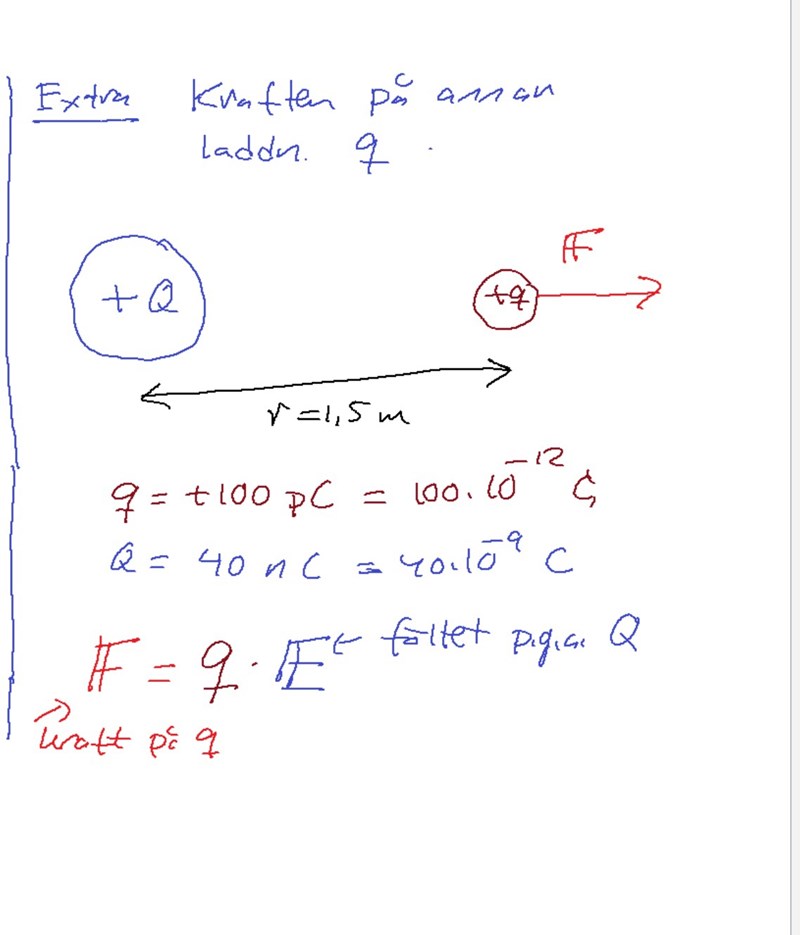 Extra Kraften på annan
laddn. q.
F
+Q
+q
r = 1,5 m
q = +100 pC = 100·10⁻¹² C,
Q = 40 nC = 40·10⁻⁹ C
F = q · E ← fältet p.g.a. Q
kraft på q